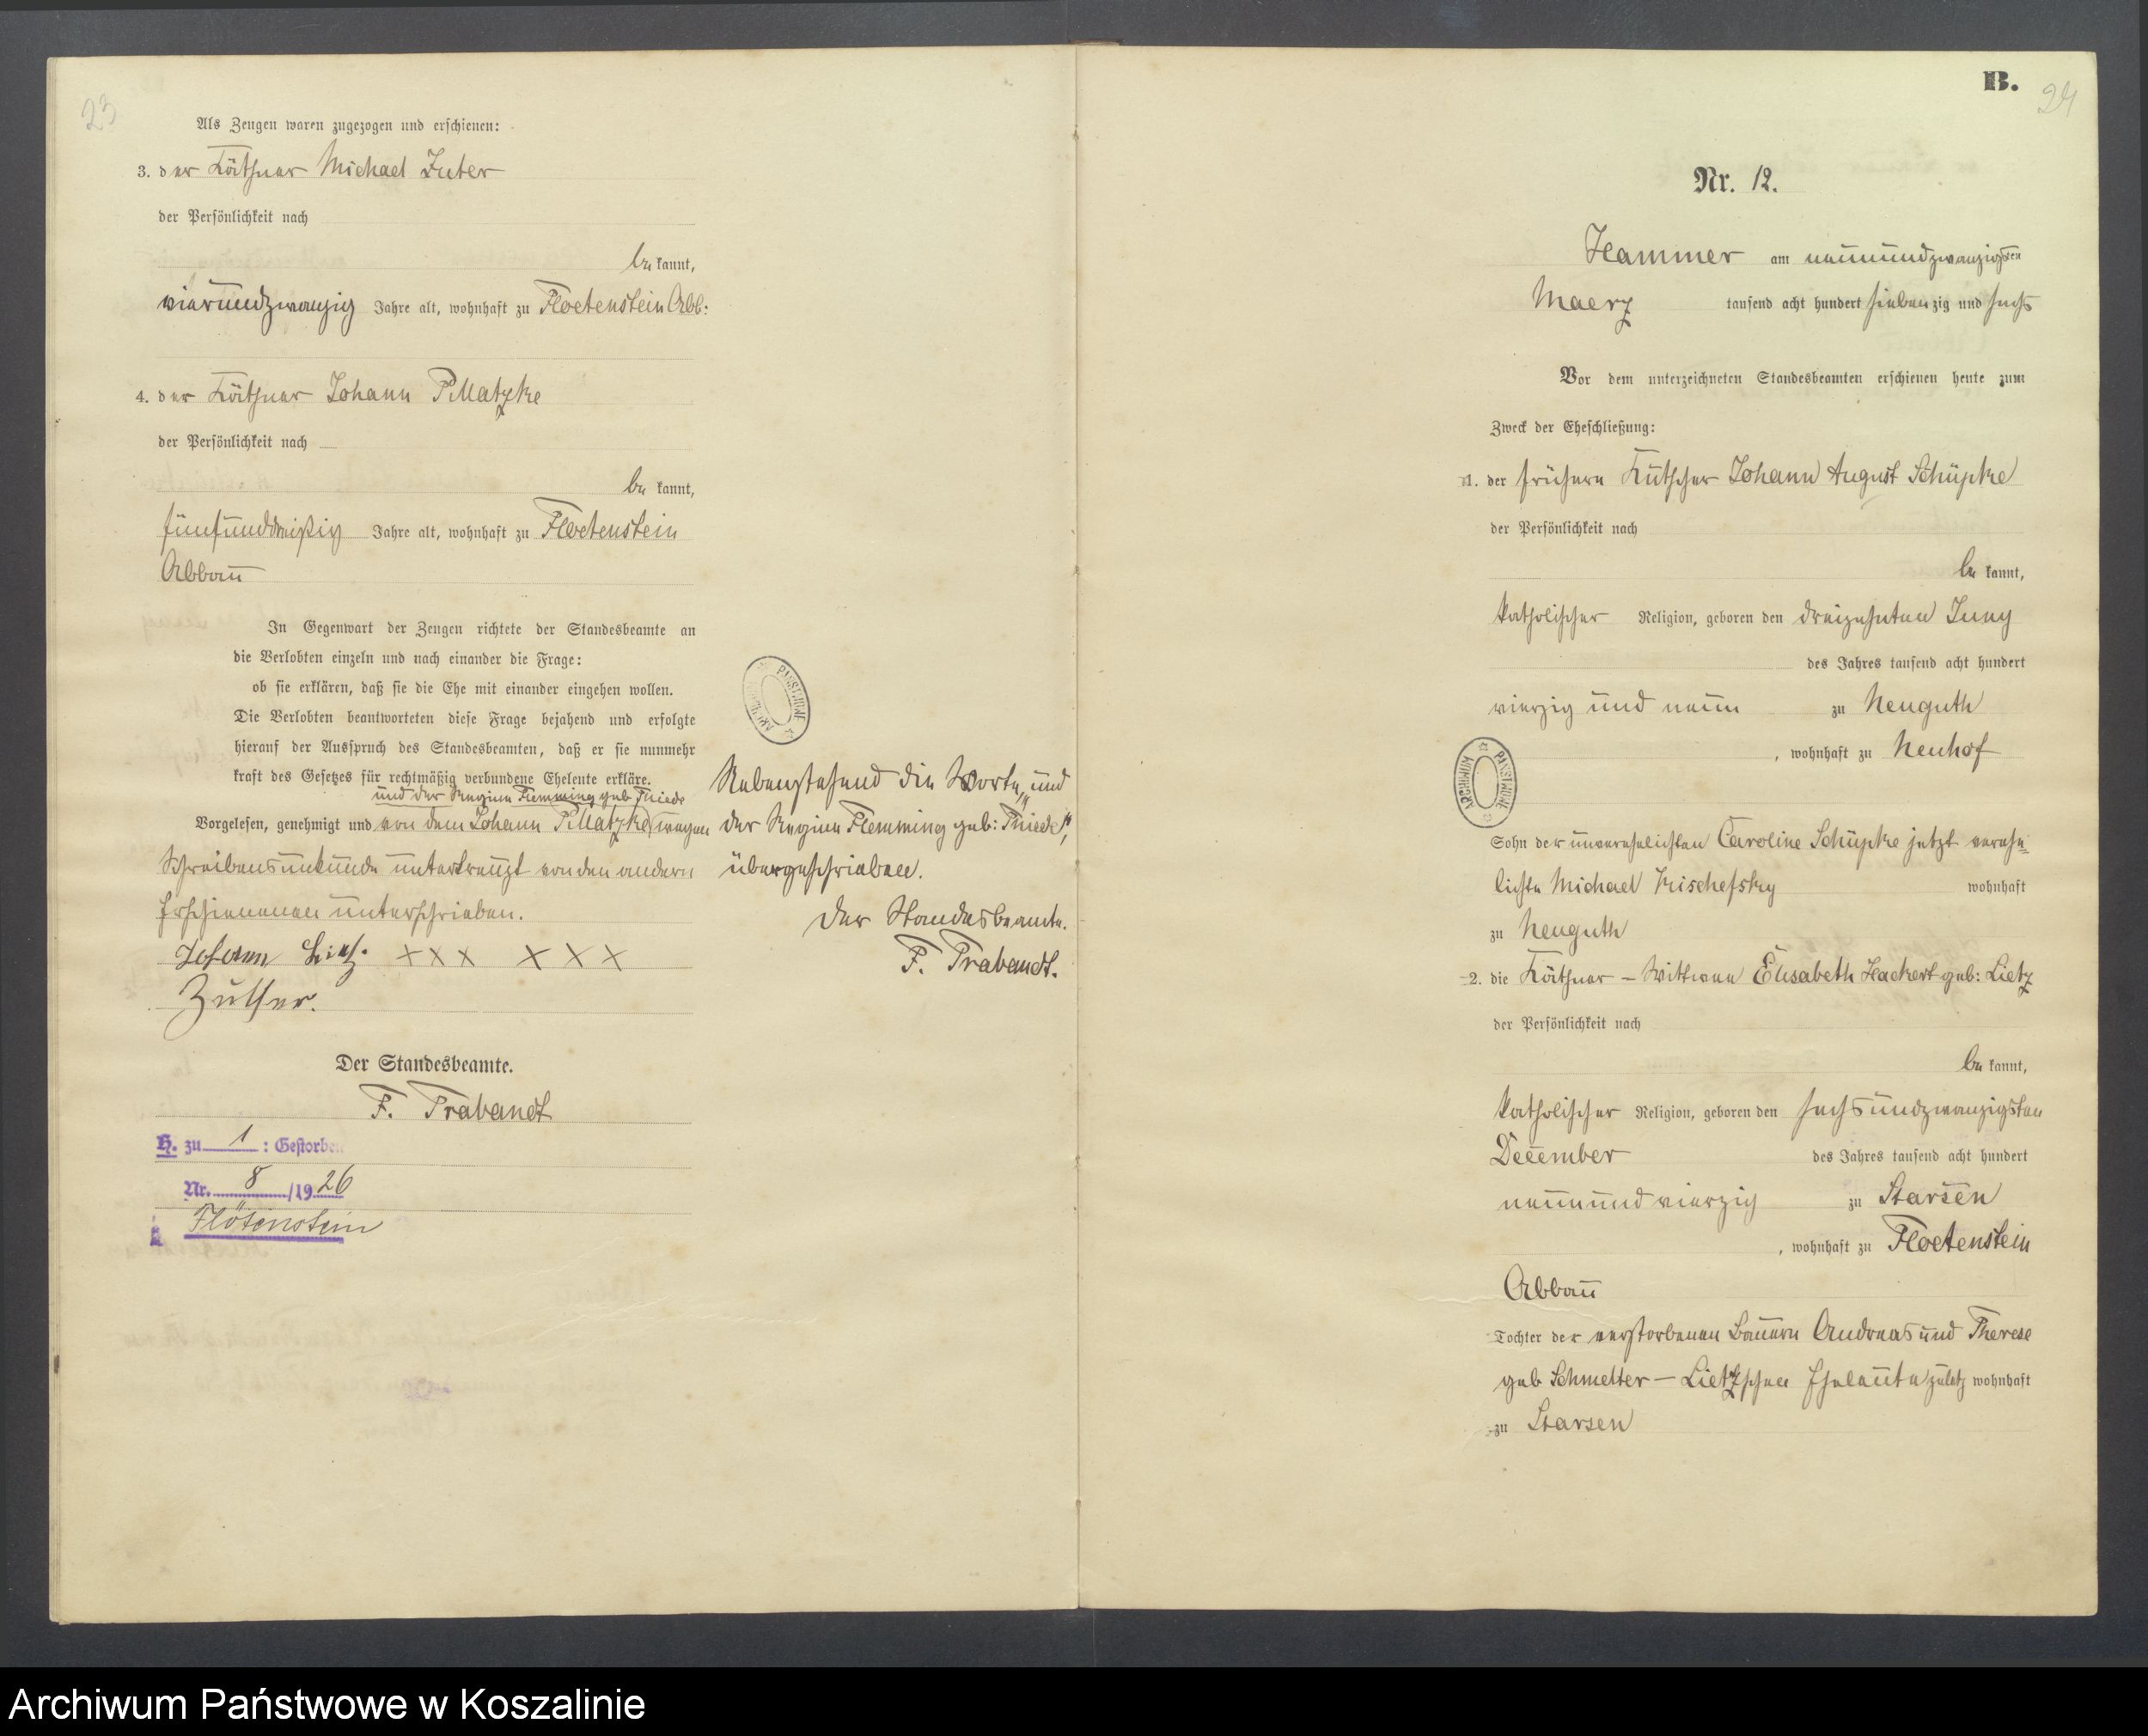 23
Als Zeugen waren zugezogen und erschienen:
3. der Käthner Michael Zuter
der Persönlichkeit nach
be kannt,
vierundzwanzig Jahre alt, wohnhaft zu Floetenstein Abb:
4. der Käthner Johann P. Matzke
der Persönlichkeit nach
be kannt,
fünfunddreißig Jahre alt, wohnhaft zu Floetenstein
Abbau
In Gegenwart der Zeugen richtete der Standesbeamte an
die Verlobten einzeln und nach einander die Frage:
ob sie erklären, daß sie die Ehe mit einander eingehen wollen.
Die Verlobten beantworteten diese Frage bejahend und erfolgte
hierauf der Ausspruch des Standesbeamten, daß er sie nunmehr
kraft des Gesetzes für rechtmäßig verbundene Eheleute erkläre.
und der Regine Flemming geb Thiede
Vorgelesen, genehmigt und von dem Johann P. Matzke wegen
Schreibensunkunde unterkreuzt von den andern
Erschienenen unterschrieben.
Johann Lietz. XXX XXX
Zuther.
Der Standesbeamte.
F. Trabandt
H. zu 1 : Gestorben
Nr. 8 /19 26
Flötenstein
ARCHIWUM PAŃSTWOWE
Nebenstehend die Worte „und
der Regine Flemming geb: Thiede",
übergeschrieben.
Der Standesbeamte.
F. Trabandt.
B.
24
Nr. 12.
Hammer am neunundzwanzigsten
Maerz tausend acht hundert siebenzig und sechs
Vor dem unterzeichneten Standesbeamten erschienen heute zum
Zweck der Eheschließung:
1. der frühere Kutscher Johann August Schüpke
der Persönlichkeit nach
be kannt,
katholischer Religion, geboren den dreizehnten Juny
des Jahres tausend acht hundert
vierzig und neun zu Neuguth
, wohnhaft zu Neuhof
ARCHIWUM PAŃSTWOWE
Sohn der unverehelichten Caroline Schüpke jetzt verehe-
lichte Michael Kischefsky wohnhaft
zu Neuguth
2. die Käthner - Wittwe Elisabeth Hackert geb: Lietz
der Persönlichkeit nach
be kannt,
katholischer Religion, geboren den sechsundzwanzigsten
December des Jahres tausend acht hundert
neunundvierzig zu Starsen
, wohnhaft zu Floetenstein
Abbau
Tochter der verstorbenen Bauern Andreas und Therese
geb Schmelter - Lietzschen Eheleute zuletz wohnhaft
zu Starsen
Archiwum Państwowe w Koszalinie